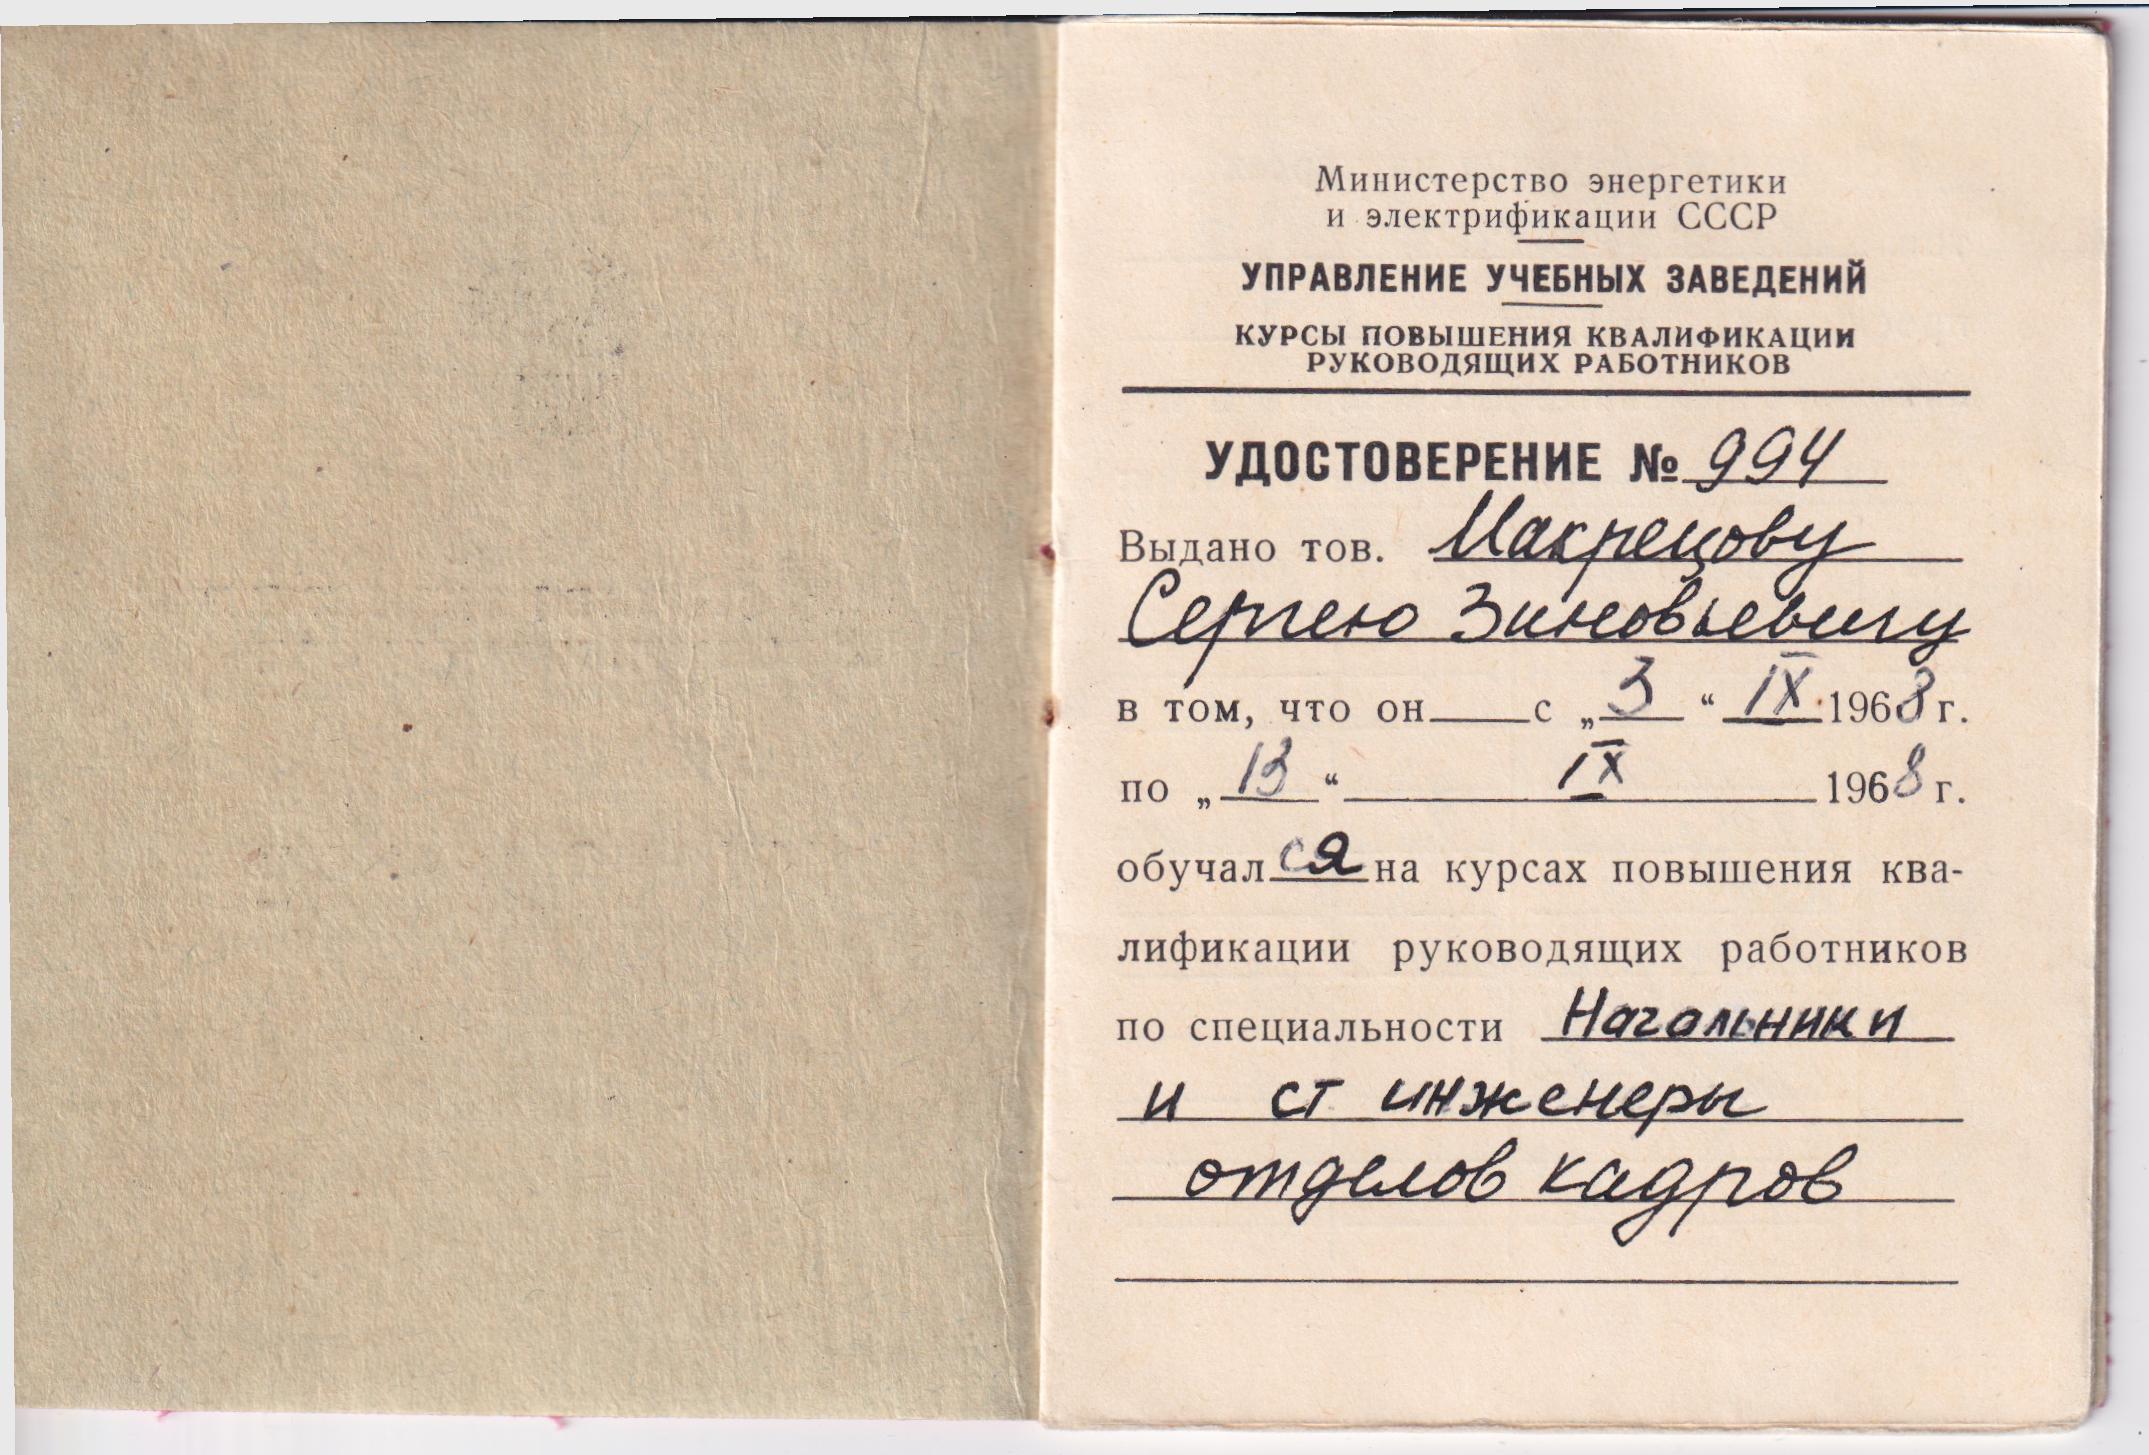 Министерство энергетики
и электрификации СССР
УПРАВЛЕНИЕ УЧЕБНЫХ ЗАВЕДЕНИЙ
КУРСЫ ПОВЫШЕНИЯ КВАЛИФИКАЦИИ
РУКОВОДЯЩИХ РАБОТНИКОВ
УДОСТОВЕРЕНИЕ № 994
Выдано тов. Макрецову
Сергею Зиновьевичу
в том, что он с „3“ IX 1968 г.
по „13“ IX 1968 г.
обучался на курсах повышения ква-
лификации руководящих работников
по специальности Начальники
и ст инженеры
отделов кадров